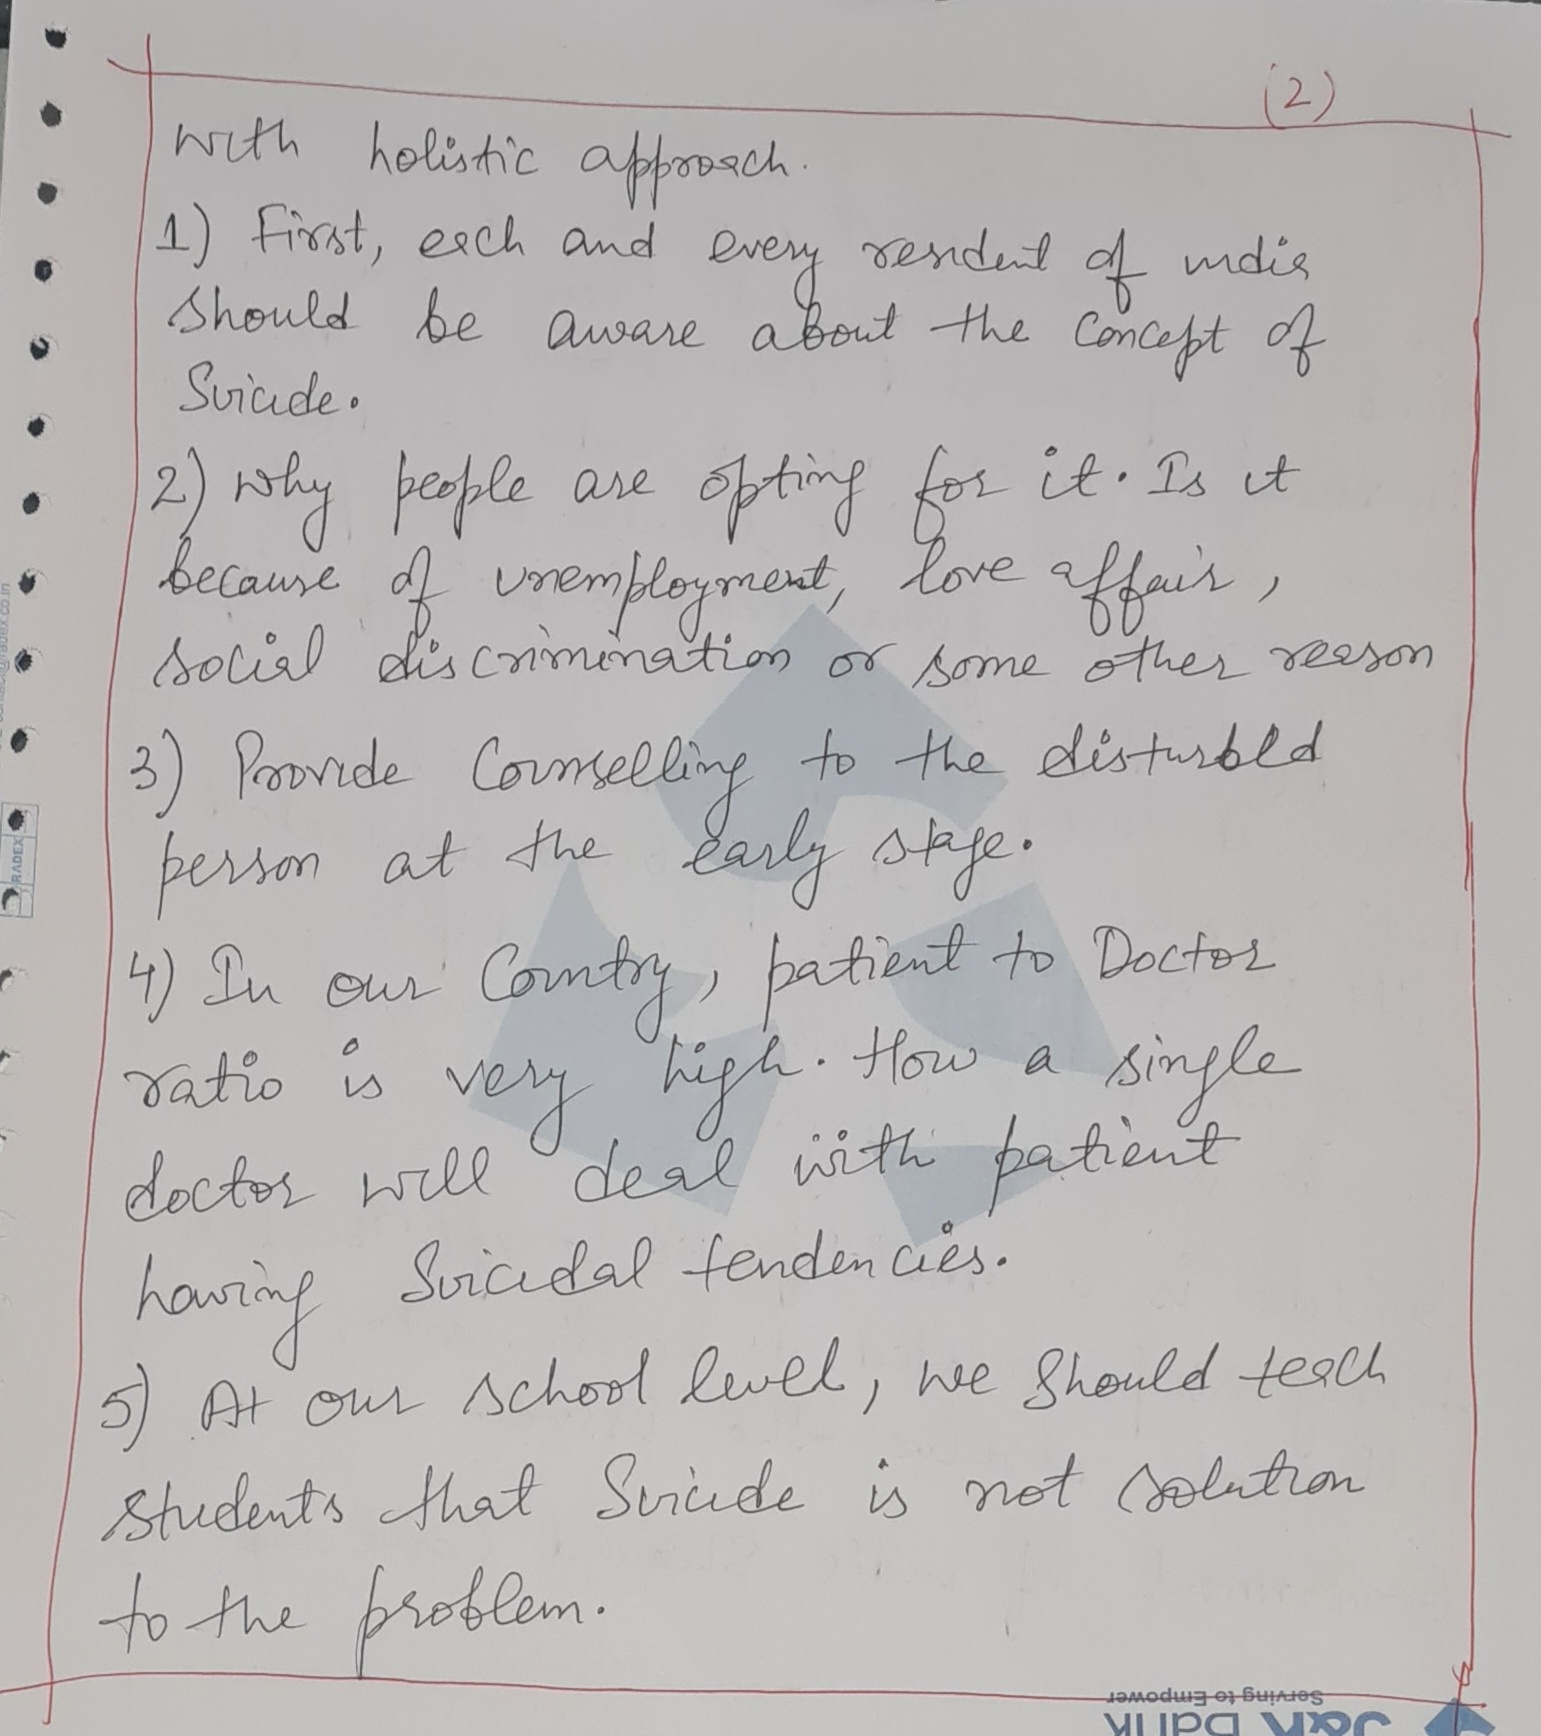 (2)
with holistic approach.
1) First, each and every resident of india
should be aware about the concept of
Suicide.
2) why people are opting for it. Is it
because of unemployment, love affair,
social discrimination or some other reason
3) Provide Counselling to the disturbed
person at the early stage.
4) In our Country, patient to Doctor
ratio is very high. How a single
doctor will deal with patient
having Suicidal tendencies.
5) At our school level, we should teach
students that Suicide is not solution
to the problem.
Serving to Empower
J&K Bank
RADEX